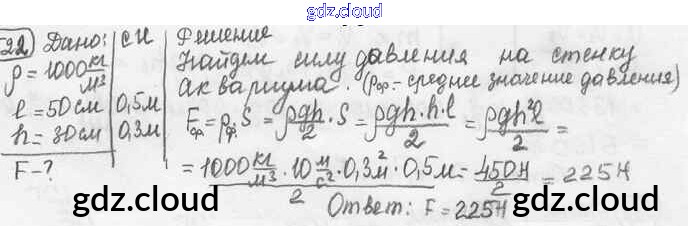 gdz.cloud
522 Дано: СИ Решение
ρ = 1000 кг/м³ Найдем силу давления на стенку
аквариума. (ρср.- среднее значение давления)
l = 50см 0,5м
h = 30см 0,3м
Fср = ρср.·S = ρgh/2 · S = ρgh·h·l/2 = ρgh²l/2 =
F - ?
= 1000 кг/м³ · 10 м/с² · 0,3м² · 0,5м / 2 = 450Н/2 = 225Н
Ответ: F = 225Н
gdz.cloud gdz.cloud